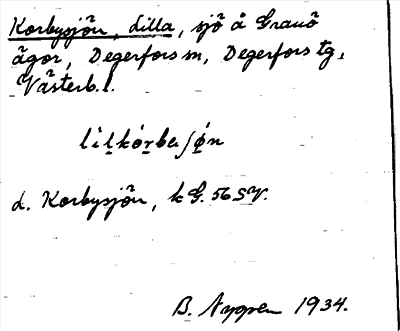 Korbysjön, Lilla, sjö å Granö
ägor, Degerfors sn, Degerfors tg,
Västerb. l.
d. Korbysjön, k G. 56 SV.
B. Nygren 1934.